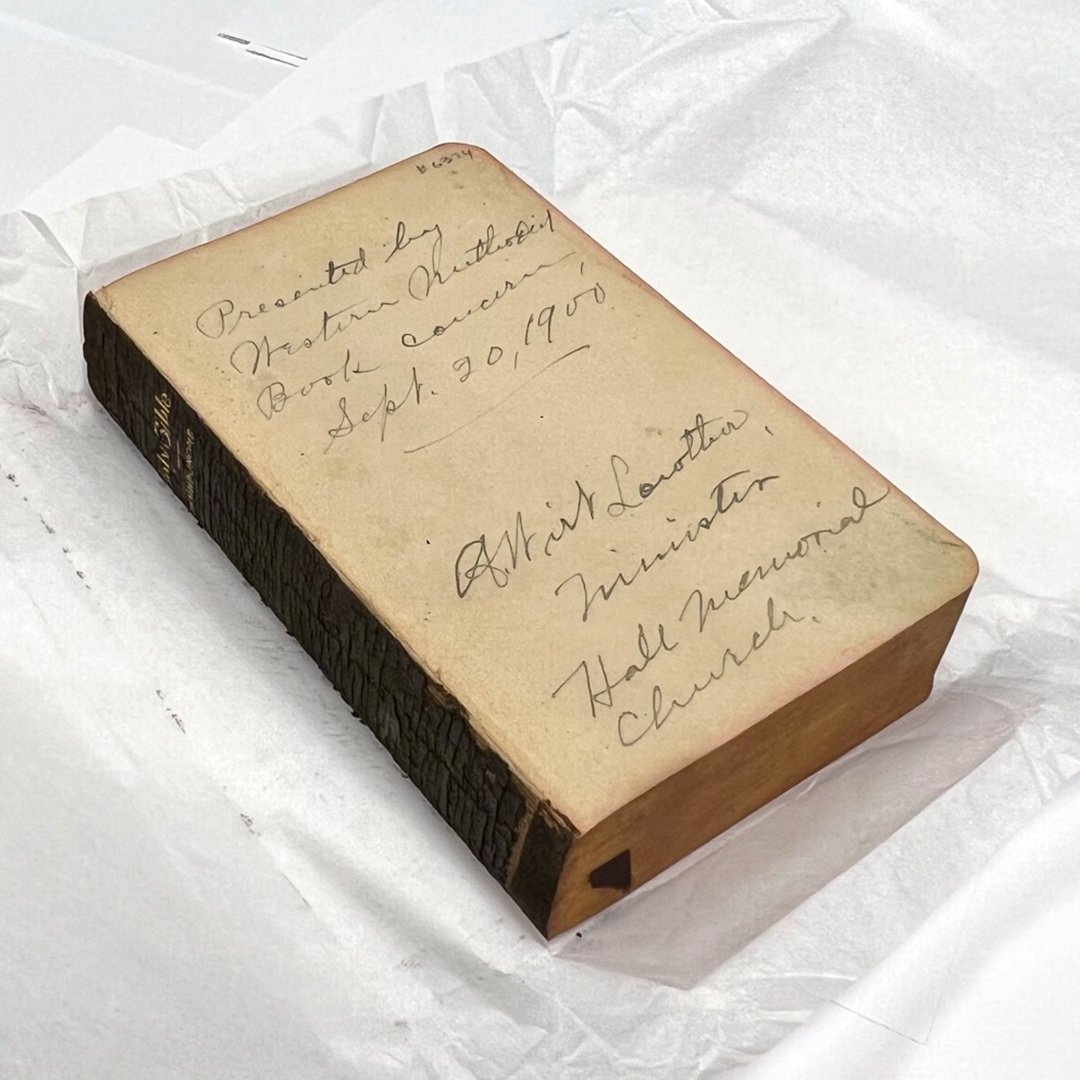 #6374
Presented by
Western Methodist
Book concern,
Sept. 20, 1900
Lowther,
Minister
Hall Memorial
Church.
Holy Bible